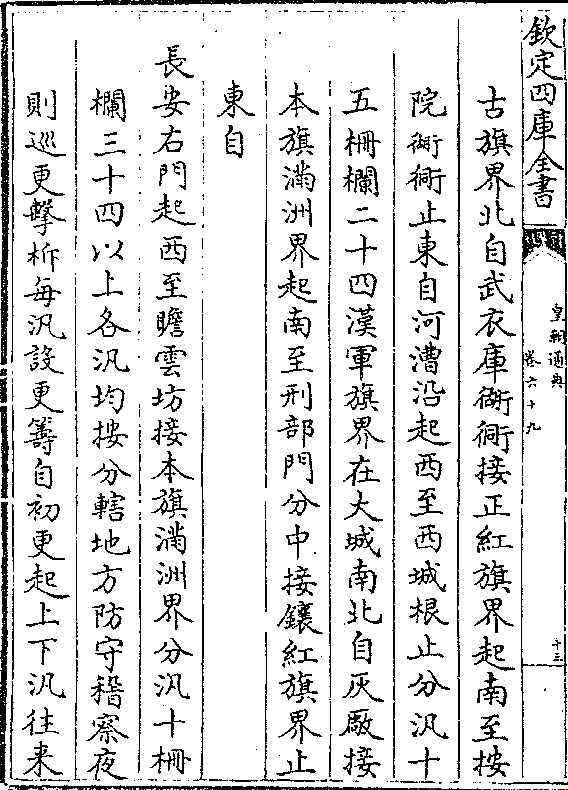 欽定四庫全書
皇朝通典
卷六十九
十三
古旗界北自武衣庫衚衕接正紅旗界起南至按
院衚衕止東自河漕沿起西至西城根止分汎十
五柵欄二十四漢軍旗界在大城南北自灰厰接
本旗滿洲界起南至刑部門分中接鑲紅旗界止
東自
長安右門起西至瞻雲坊接本旗滿洲界分汎十柵
欄三十四以上各汎均按分轄地方防守稽察夜
則巡更擊柝每汎設更籌自初更起上下汎往來